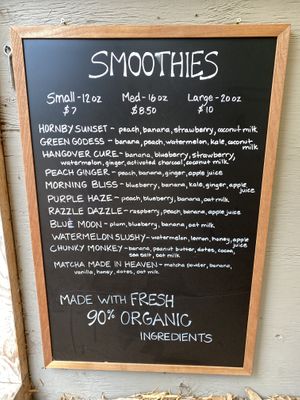 SMOOTHIES
Small-12oz Med-16oz Large-20oz
$7 $8.50 $10
HORNBY SUNSET - peach, banana, strawberry, coconut milk
GREEN GODESS - banana, peach, watermelon, kale, coconut milk
HANGOVER CURE - banana, blueberry, strawberry,
watermelon, ginger, activated charcoal, coconut milk
PEACH GINGER - peach, banana, ginger, apple juice
MORNING BLISS - blueberry, banana, kale, ginger, apple juice
PURPLE HAZE - peach, blueberry, banana, oat milk
RAZZLE DAZZLE - raspberry, peach, banana, apple juice
BLUE MOON - plum, blueberry, banana, oat milk
WATERMELON SLUSHY - watermelon, lemon, honey, apple juice
CHUNKY MONKEY - banana, peanut butter, dates, cocoa,
sea salt, oat milk
MATCHA MADE IN HEAVEN - matcha powder, banana,
vanilla, honey, dates, oat milk
MADE WITH FRESH
90% ORGANIC
INGREDIENTS